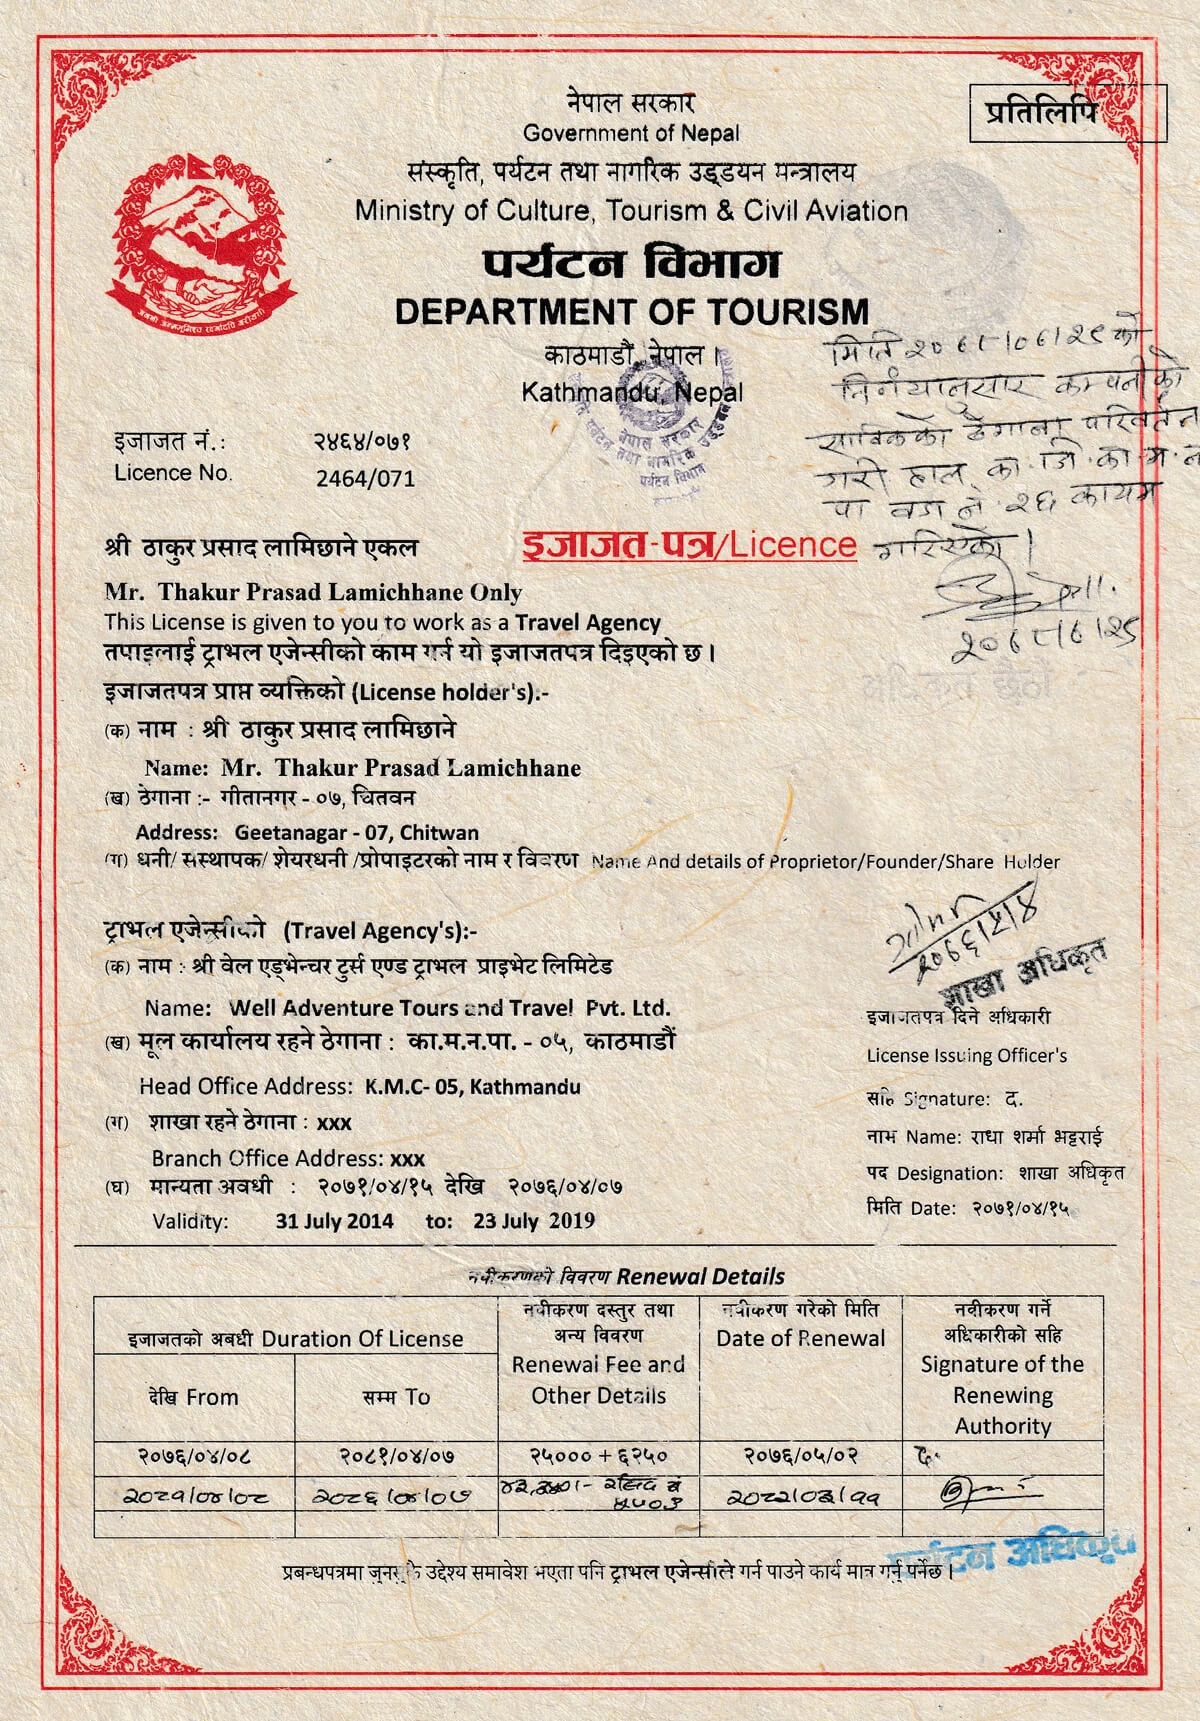 नेपाल सरकार
Government of Nepal
प्रतिलिपि
संस्कृति, पर्यटन तथा नागरिक उड्डयन मन्त्रालय
Ministry of Culture, Tourism & Civil Aviation
पर्यटन विभाग
DEPARTMENT OF TOURISM
काठमाडौं, नेपाल ।
Kathmandu, Nepal
मिति २०६८/०६/२९ को
निर्णयानुसार कम्पनीको
साविकको ठेगाना परिवर्तन
गरी हाल का.जि.का.म.न.
पा वडा नं २६ कायम
गरिएको ।
२०६८/६/२९
इजाजत नं.: २४६४/०७१
Licence No. 2464/071
नेपाल सरकार
पर्यटन विभाग
इजाजत-पत्र/Licence
श्री ठाकुर प्रसाद लामिछाने एकल
Mr. Thakur Prasad Lamichhane Only
This License is given to you to work as a Travel Agency
तपाइलाई ट्राभल एजेन्सीको काम गर्न यो इजाजतपत्र दिइएको छ ।
इजाजतपत्र प्राप्त व्यक्तिको (License holder's):-
(क) नाम : श्री ठाकुर प्रसाद लामिछाने
Name: Mr. Thakur Prasad Lamichhane
(ख) ठेगाना :- गीतानगर - ०७, चितवन
Address: Geetanagar - 07, Chitwan
(ग) धनी/ संस्थापक/ शेयरधनी /प्रोपाइटरको नाम र विवरण Name And details of Proprietor/Founder/Share Holder
ट्राभल एजेन्सीको (Travel Agency's):-
(क) नाम : श्री वेल एड्भेन्चर टुर्स एण्ड ट्राभल प्राइभेट लिमिटेड
Name: Well Adventure Tours and Travel Pvt. Ltd.
(ख) मूल कार्यालय रहने ठेगाना : का.म.न.पा. - ०५, काठमाडौं
Head Office Address: K.M.C- 05, Kathmandu
(ग) शाखा रहने ठेगाना : xxx
Branch Office Address: xxx
(घ) मान्यता अवधी : २०७१/०४/१५ देखि २०७६/०४/०७
Validity: 31 July 2014 to: 23 July 2019
२०७६/५/४
शाखा अधिकृत
इजाजतपत्र दिने अधिकारी
License Issuing Officer's
सहि Signature: द.
नाम Name: राधा शर्मा भट्टराई
पद Designation: शाखा अधिकृत
मिति Date: २०७१/०४/१५
नवीकरणको विवरण Renewal Details
इजाजतको अबधी Duration Of License
देखि From
सम्म To
नवीकरण दस्तुर तथा
अन्य विवरण
Renewal Fee and
Other Details
नवीकरण गरेको मिति
Date of Renewal
नवीकरण गर्ने
अधिकारीको सहि
Signature of the
Renewing
Authority
२०७६/०४/०८ २०८१/०४/०७ २५००० + ६२५० २०७६/०५/०२ द.
२०८१/०४/०८ २०८६/०४/०७ रसिद नं २०८२/०३/११
पर्यटन अधिकृत
प्रबन्धपत्रमा जुनसुकै उद्देश्य समावेश भएता पनि ट्राभल एजेन्सीले गर्न पाउने कार्य मात्र गर्नु पर्नेछ ।